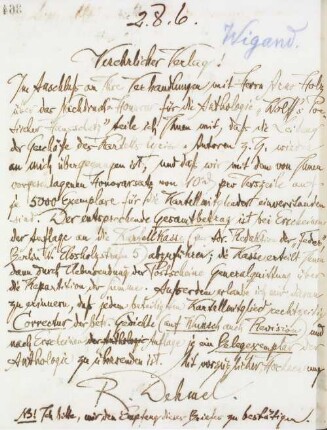 438
2.8.6.
Wigand.
Verehrlicher Verlag!
Im Anschluß an Ihre Verhandlungen mit Herrn Arno Holz
über das Nachdrucks-Honorar für die Anthologie „Wolff's Po-
etischer Hausschatz" teile ich Ihnen mit, daß die Leitung
der Geschäfte des Kartells lyrischer Autoren z. Z. wieder
an mich übergegangen ist, und daß wir mit dem von Ihnen
vorgeschlagenen Honorarsatz von pro Verszeile auf
je 5000 Exemplare für die Kartellmitglieder einverstanden
sind. Der entsprechende Gesamtbetrag ist bei Erscheinen
der Auflage an die Kartellkasse (an die Redaktion der „Feder"
Berlin abzuführen; die Kasse erteilt Ihnen
dann durch Uebersendung der Postscheine Generalquittung über
die Repartition der Summe. Außerdem erlaube ich mir daran
zu erinnern, daß jedem beteiligten Kartellmitglied rechtzeitig
Correctur der betr. Gedichte (auf Wunsch auch Revision) und
nach Erscheinen der Anthologie je ein Belegexemplar der
Anthologie zu übersenden ist. Mit vorzüglicher Hochachtung
R. Dehmel.
NB! Ich bitte, mir den Empfang dieses Briefes zu bestätigen!